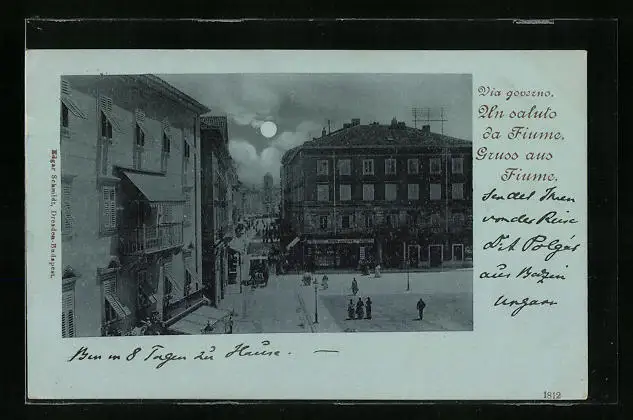 Via governo.
Un saluto
da Fiume.
Gruss aus
Fiume.
sendet Ihnen
von der Reise
Dr A Polgár
aus
Ungarn
Bin in 8 Tagen zu Hause. —
Edgar Schmidt, Dresden-Budapest.
1812